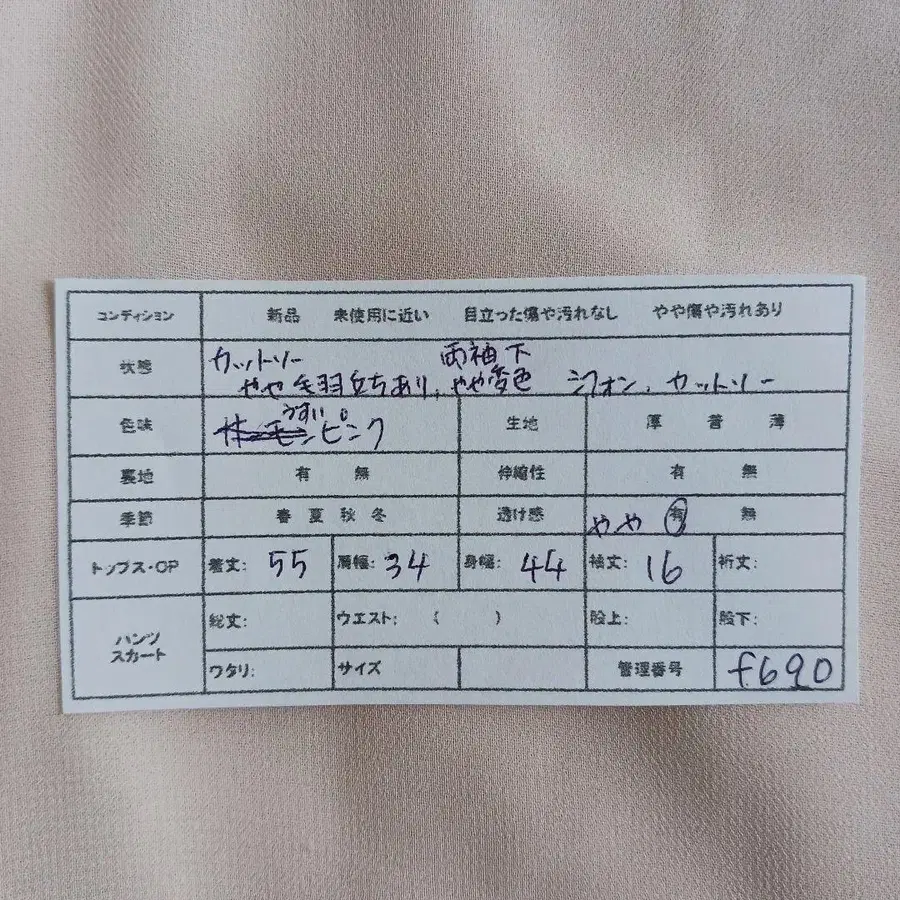 コンディション 新品 未使用に近い 目立った傷や汚れなし やや傷や汚れあり
状態 カットソー 両袖下
やや毛羽立ちあり、やや変色 シフォン、カットソー
色味 うすいピンク 生地 厚 普 薄
裏地 有 無 伸縮性 有 無
季節 春 夏 秋 冬 透け感 やや 有 無
トップス・OP 着丈: 55 肩幅: 34 身幅: 44 袖丈: 16 裄丈:
パンツ スカート 総丈: ウエスト: ( ) 股上: 股下:
ワタリ: サイズ 管理番号 f690